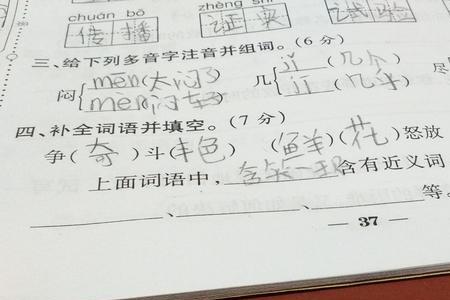 chuán bō zhèng shí
传播 证实 试验
三、给下列多音字注音并组词。(6分)
闷{ mēn(太闷了) 几{ jī(几个) 尽
mèn(闷车) jī(几乎)
四、补全词语并填空。(7分)
争(奇)斗(丰色) (鲜)(花)怒放
上面词语中,含笑一现含有近义词
、 、 等。
— 37 —